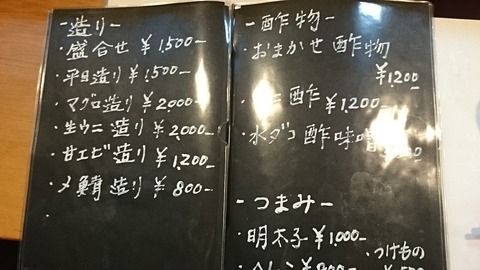 -造り-
・盛合せ ¥1,500-
・平目造り ¥1,500-
・マグロ造り ¥2,000-
・生ウニ造り ¥2,000-
・甘エビ造り ¥1,200-
・〆鯖造り ¥800-
-酢物-
・おまかせ酢物
¥1,200
酢 ¥1,200-
・水ダコ酢味噌
-つまみ-
・明太子 ¥1,000-
・つけもの